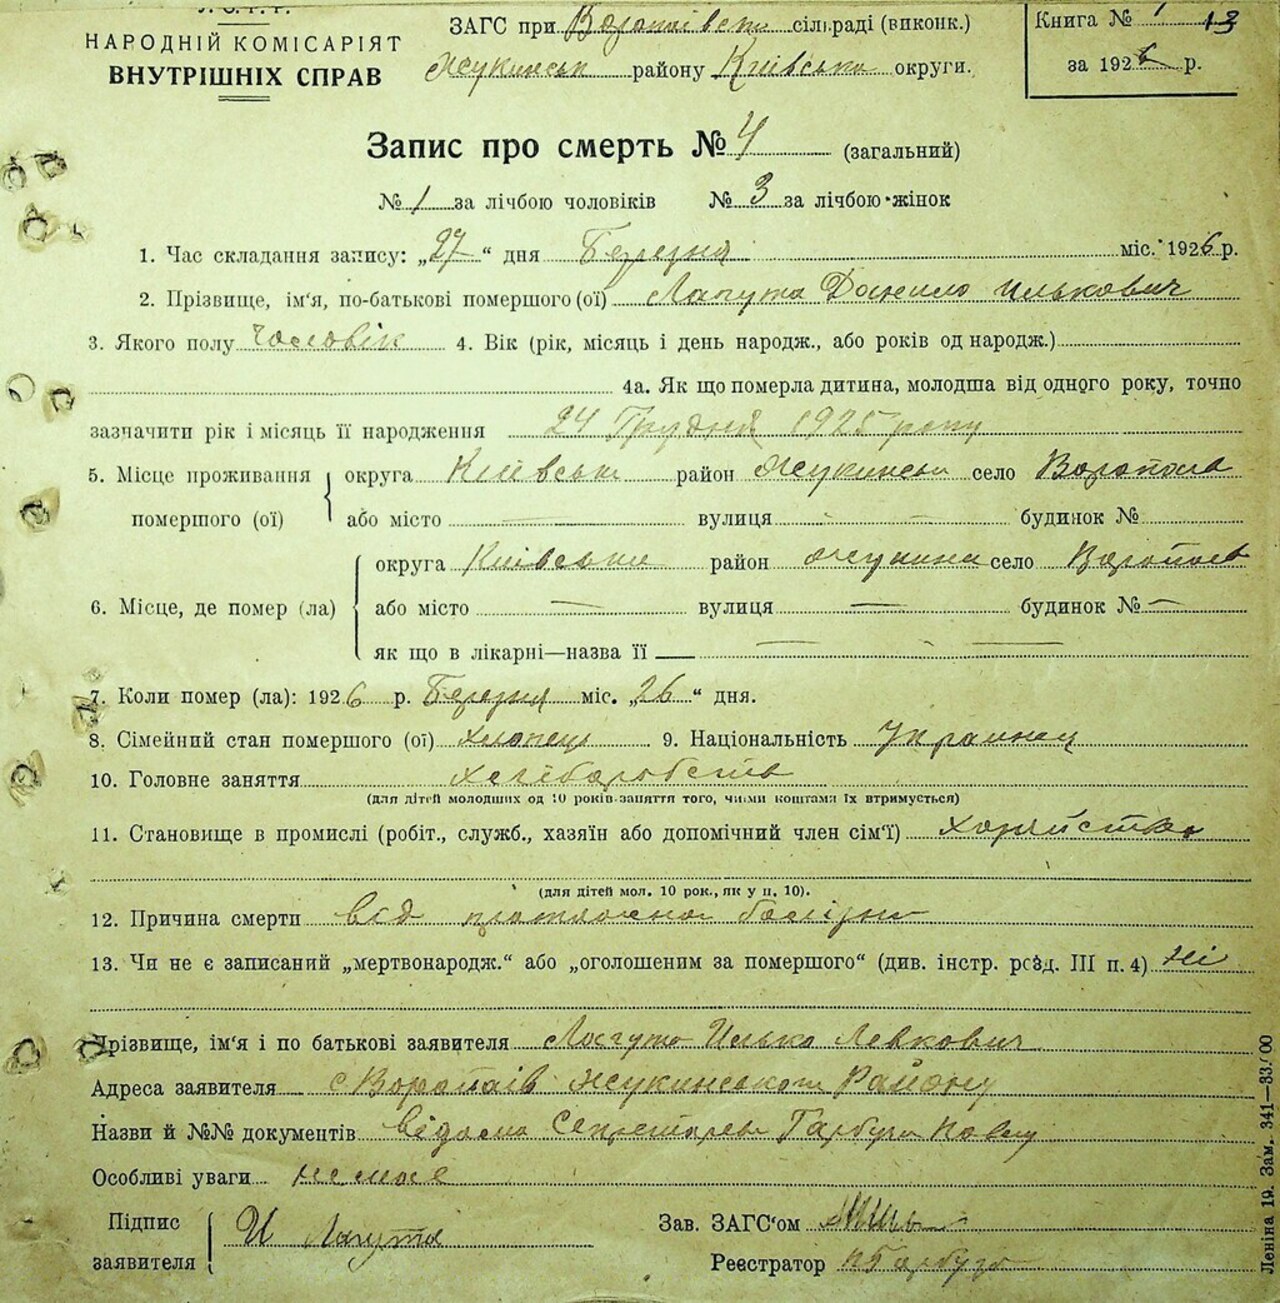 У. С. Р. Р.
НАРОДНІЙ КОМІСАРІЯТ
ВНУТРІШНІХ СПРАВ
ЗАГС при Воропаївськ сільраді (виконк.)
Жукинськ району Київсько округи.
Книга № 1 13
за 1926 р.
Запис про смерть № 4 (загальний)
№ 1 за лічбою чоловіків № 3 за лічбою жінок
1. Час складання запису: „27“ дня Березня міс. 1926 р.
2. Прізвище, ім'я, по-батькові помершого (ої) Лагута Данило Илькович
3. Якого полу Чоловік 4. Вік (рік, місяць і день народж., або років од народж.)
4а. Як що померла дитина, молодша від одного року, точно
зазначити рік і місяць її народження 24 Грудня 1925 року
5. Місце проживання помершого (ої) округа Київськ район Жукинськ село Воропаів
або місто — вулиця — будинок №
6. Місце, де помер (ла) округа Київська район Жукинськ село Воропаів
або місто — вулиця — будинок № —
як що в лікарні—назва її —
7. Коли помер (ла): 1926 р. Березня міс. „26“ дня.
8. Сімейний стан помершого (ої) хлопець 9. Національність Украинец
10. Головне заняття хліборобств
(для дітей молодших од 10 років заняття того, чиїми коштами їх втримується)
11. Становище в промислі (робіт., служб., хазяїн або допомічний член сім'ї)
(для дітей мол. 10 рок., як у п. 10).
12. Причина смерти від
13. Чи не є записаний „мертвонародж.“ або „оголошеним за помершого“ (див. інстр. розд. III п. 4) Ні
Прізвище, ім'я і по батькові заявителя Лагута Илько Левкович
Адреса заявителя с Воропаів Жукинського Району
Назви й №№ документів Відомо Секретарю Гарбузу
Особливі уваги немає
Підпис заявителя И Лагута
Зав. ЗАГС'ом
Реєстратор П Гарбуз
Леніна 19. Зам. 341—83.000